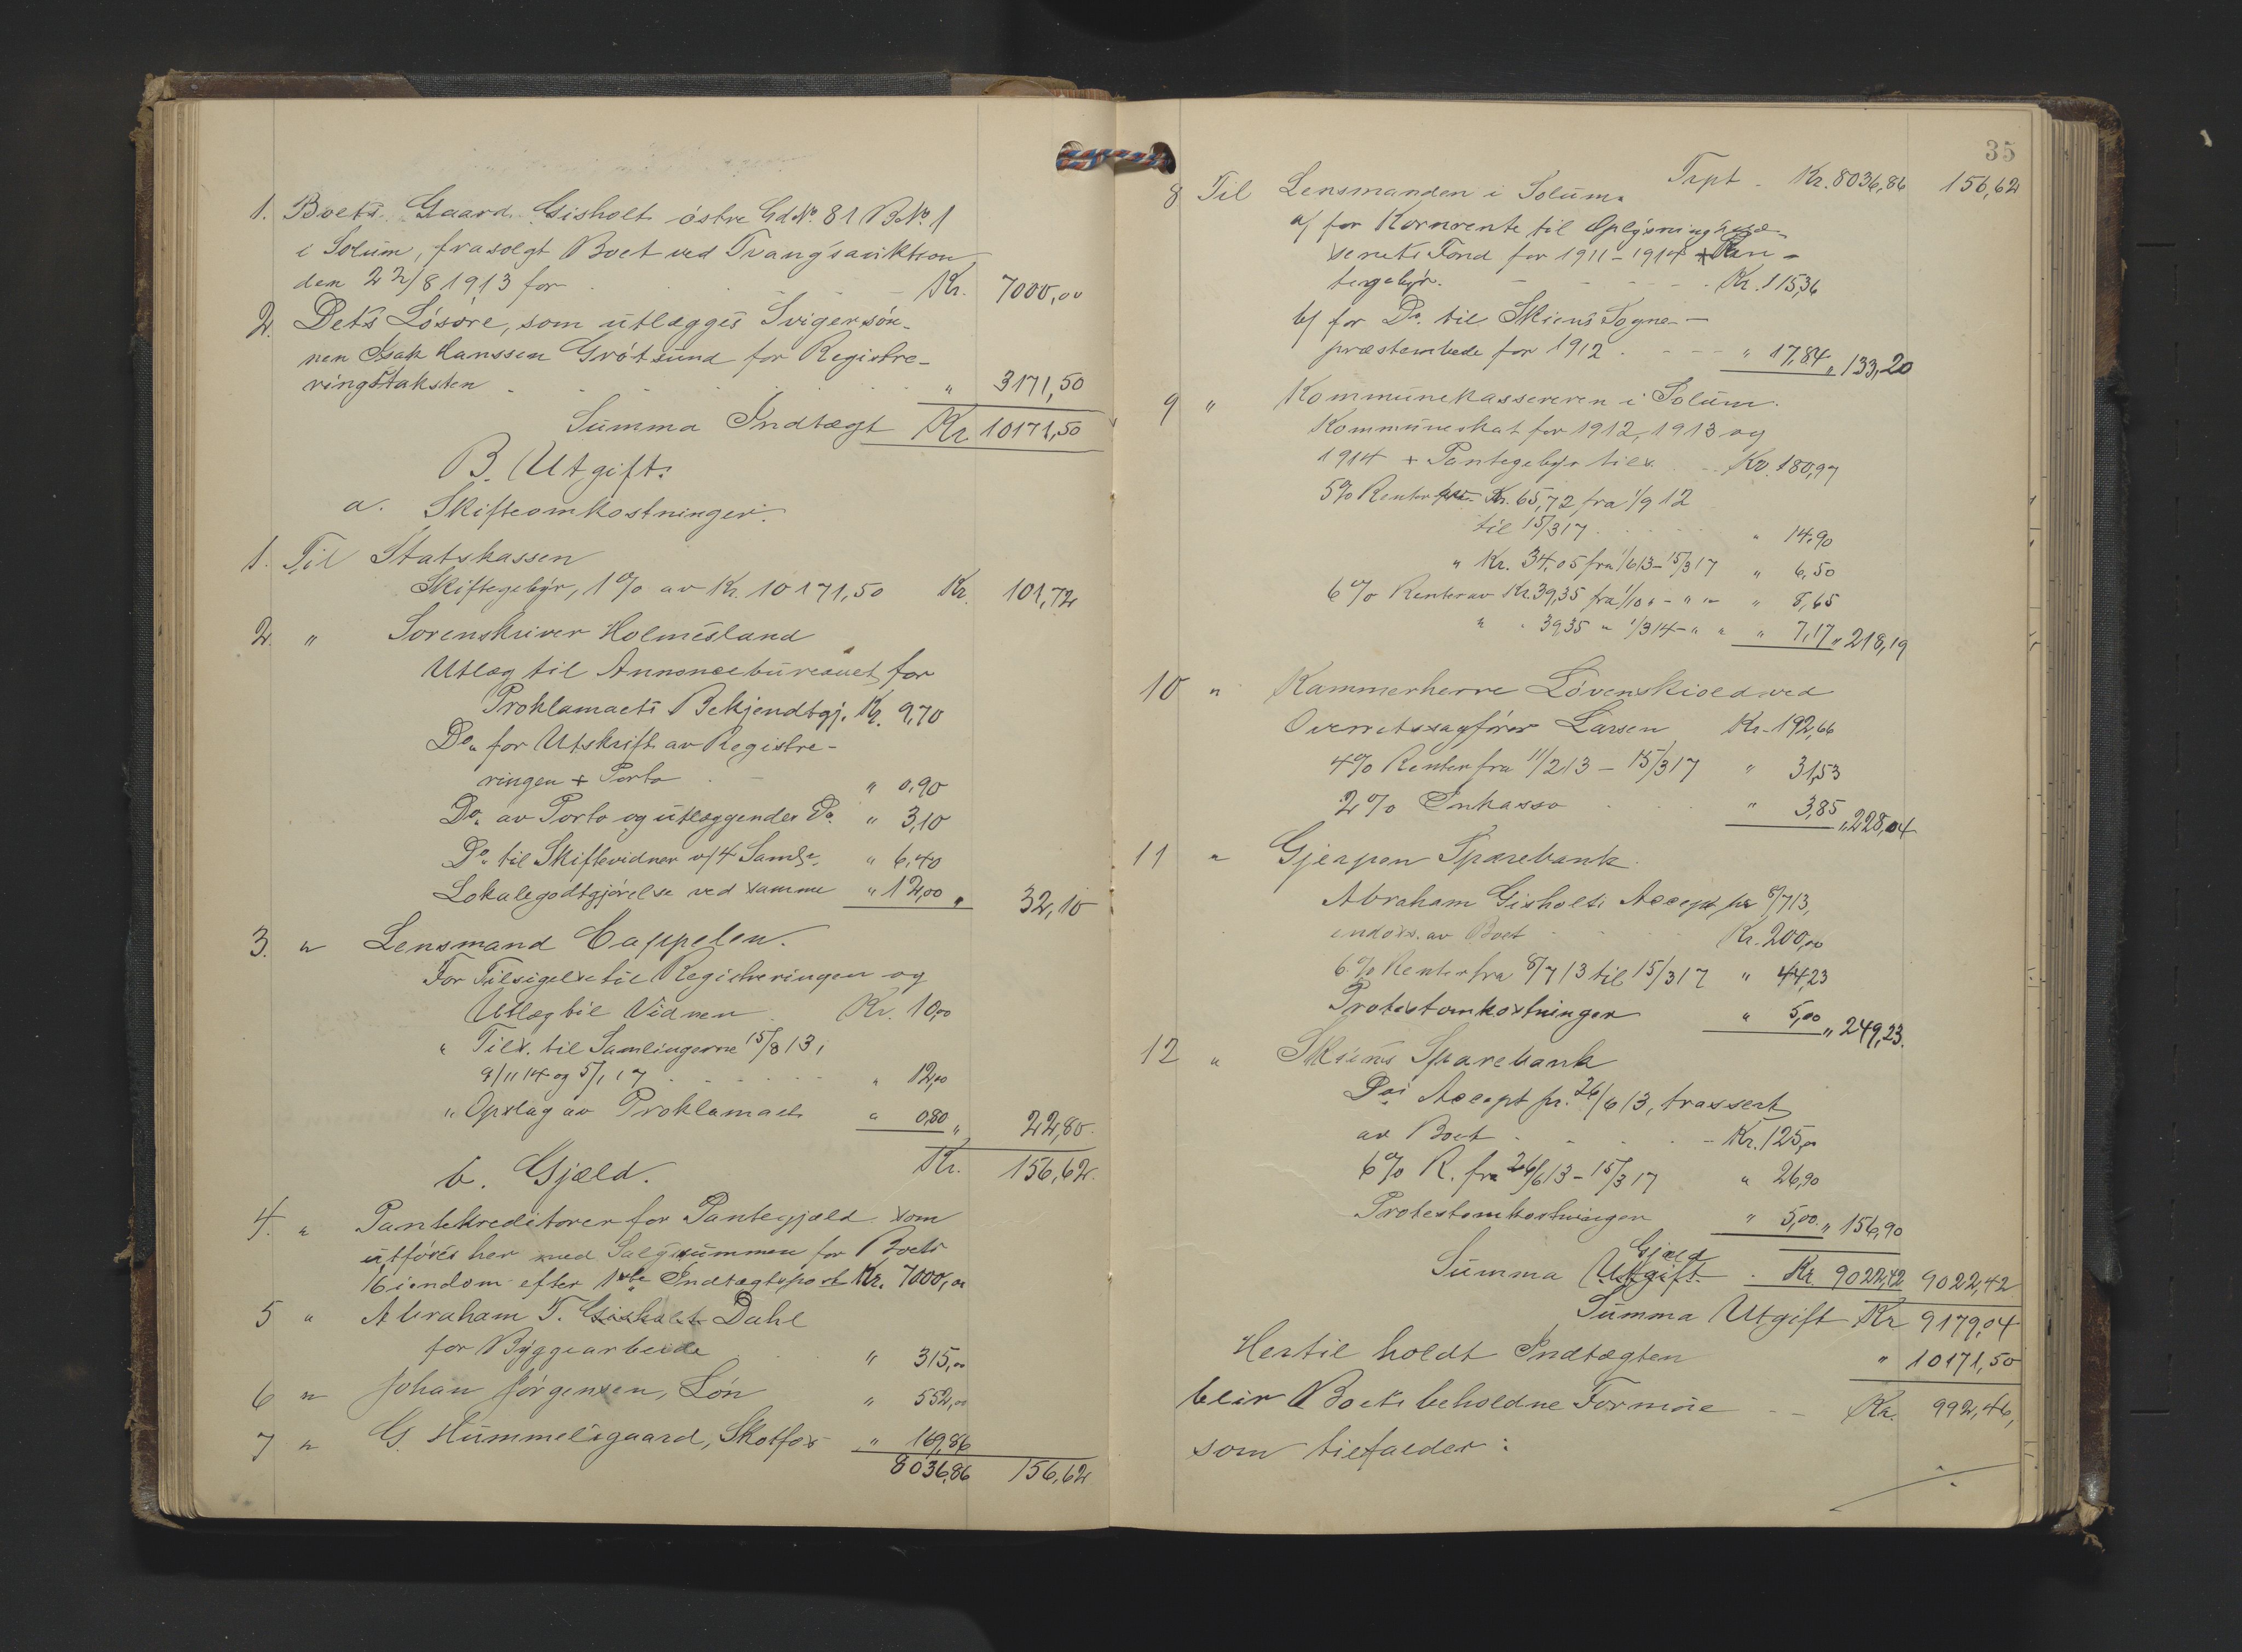 1. Boets Gaard Gisholt östre Gd.No. 81 B.No. 1
i Solum, frasolgt Boet ved Tvangsauktion
den 22/8 1913 for Kr. 7000,00
2. Dets Lösöre, som utlægges Svigersön-
nen Isak Hanssen Grötsund for Registre-
ringstaksten " 3171,50
Summa Indtægt Kr 10171,50
B. Utgift:
a. Skifteomkostninger.
1. Til Statskassen
Skiftegebyr, 1% av Kr. 10171,50 Kr. 101,72
2. " Sorenskriver Holmesland
Utlæg til Annoncebureauet for
Proklamaets Bekjendtgj. Kr. 9,70
Do. for Utskrift av Registre-
ringen + Porto " 0,90
Do. av Porto og utlæggendes Do. " 3,10
Do. til Skiftevidner v/4 Saml. " 6,40
Lokalegodtgjörelse ved samme " 12,00 " 32,10
3. " Lensmand Cappelen.
For Tilsigelse til Registreringen og
Utlæg til Vidnen Kr. 10,00
" Tils. til Samlingerne 15/8 13,
9/11 14 og 5/1 17 " 12,00
" Opslag av Proklamaet " 0,80 " 22,80.
Kr. 156,62.
b. Gjæld.
4. " Pantekreditorer for Pantegjæld som
utföres her med Salgssummen for Boets
Eiendom efter 1ste Indtægtspost Kr. 7000,00
5 " Abraham T. Gisholt Dahl
for Byggearbeide " 315,00
6 " Johan Jörgensen, Lön " 552,00
7 " G. Hummelsgaard, Skotfos " 169,86
8036,86 156,62
35
Trpt. Kr. 8036,86 156,62
8 Til Lensmanden i Solum.
a/ for Kornrente til Oplysningsvæ-
senets Fond for 1911-1914 + Pan-
tegebyr. Kr. 115,36
b/ for Do. til Skiens Sogne-
præstembede for 1912 " 17,84 " 133,20
9 " Kommunekassereren i Solum.
Kommuneskat for 1912, 1913 og
1914 + Pantegebyr tils. Kr. 180,97
5% Renter Kr. 65,72 fra 1/9 12
til 15/3 17 " 14,90
" Kr. 34,05 fra 1/6 13-15/3 17 " 6,50
6% Renter av Kr. 39,35 fra 1/10 " - " " " 8,65
" " 39,35 " 1/3 14 - " " " 7,17 " 218,19
10 " Kammerherre Lövenskiold ved
Overretssagförer Larsen Kr. 192,66
4% Renter fra 11/2 13 - 15/3 17 " 31,53
2% Inkasso " 3,85 " 228,04
11 " Gjerpen Sparebank.
Abraham Gisholts Accept pr 8/7 13,
endoss. av Boet Kr. 200,00
6% Renter fra 8/7 13 til 15/3 17 " 44,23
Protestomkostninger " 5,00 " 249,23.
12 " Skiens Sparebank
Do.s Accept pr. 26/6 13, trassert
av Boet Kr. 125,00
6% R. fra 26/6 13 - 15/3 17 " 26,90
Protestomkostninger " 5,00 " 156,90
Summa Utgift Gjæld Kr. 9022,42 9022,42
Summa Utgift Kr 9179,04
Hertil holdt Indtægten " 10171,50
blir Boets beholdne Formue Kr. 992,46,
som tilfalder: